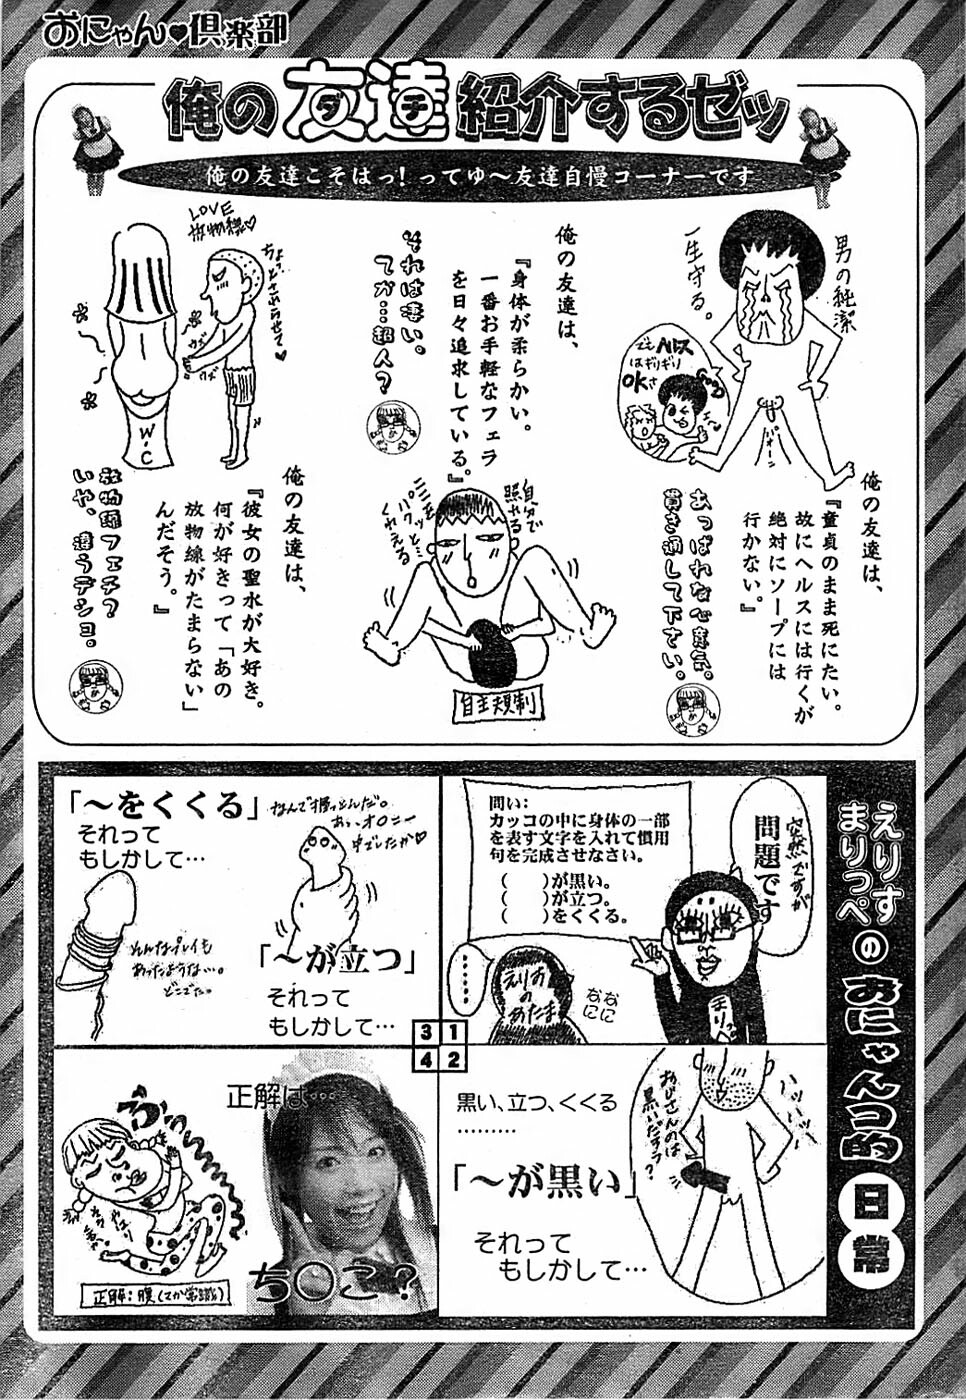 おにゃん♥倶楽部
俺の友達紹介するゼッ
ダチ
俺の友達こそはっ！ってゆ〜友達自慢コーナーです
男の純潔
一生守る。
でもヘルス
はギリギリ
OKさ
俺の友達は、
『童貞のまま死にたい。
故にヘルスには行くが
絶対にソープには
行かない。』
あっぱれな心意気。
貫き通して下さい。
俺の友達は、
『身体が柔らかい。
一番お手軽なフェラ
を日々追求している。』
それは凄い。
てか…超人？
自分で
照やる
自主規制
LOVE
放物線♡
ちょっとさわらせて♡
W・C
俺の友達は、
『彼女の聖水が大好き。
何が好きって「あの
放物線がたまらない」
んだそう。』
放物線フェチ？
いや、違うデショ。
えりす
まりっぺ
のおにゃんコ的日常
突然ですが
問題です
問い：
カッコの中に身体の一部
を表す文字を入れて慣用
句を完成させなさい。
（　　）が黒い。
（　　）が立つ。
（　　）をくくる。
……
えりすの
あたま
なになに
1
黒い、立つ、くくる
………
「〜が黒い」
それって
もしかして…
おじさんのは
黒いだすヲ？
2
「〜をくくる」
それって
もしかして…
そんなプレイも
あったような…。
どこでだ。
「〜が立つ」
それって
もしかして…
3
正解は…
ち○こ？
正解：腹（てか常識）
4